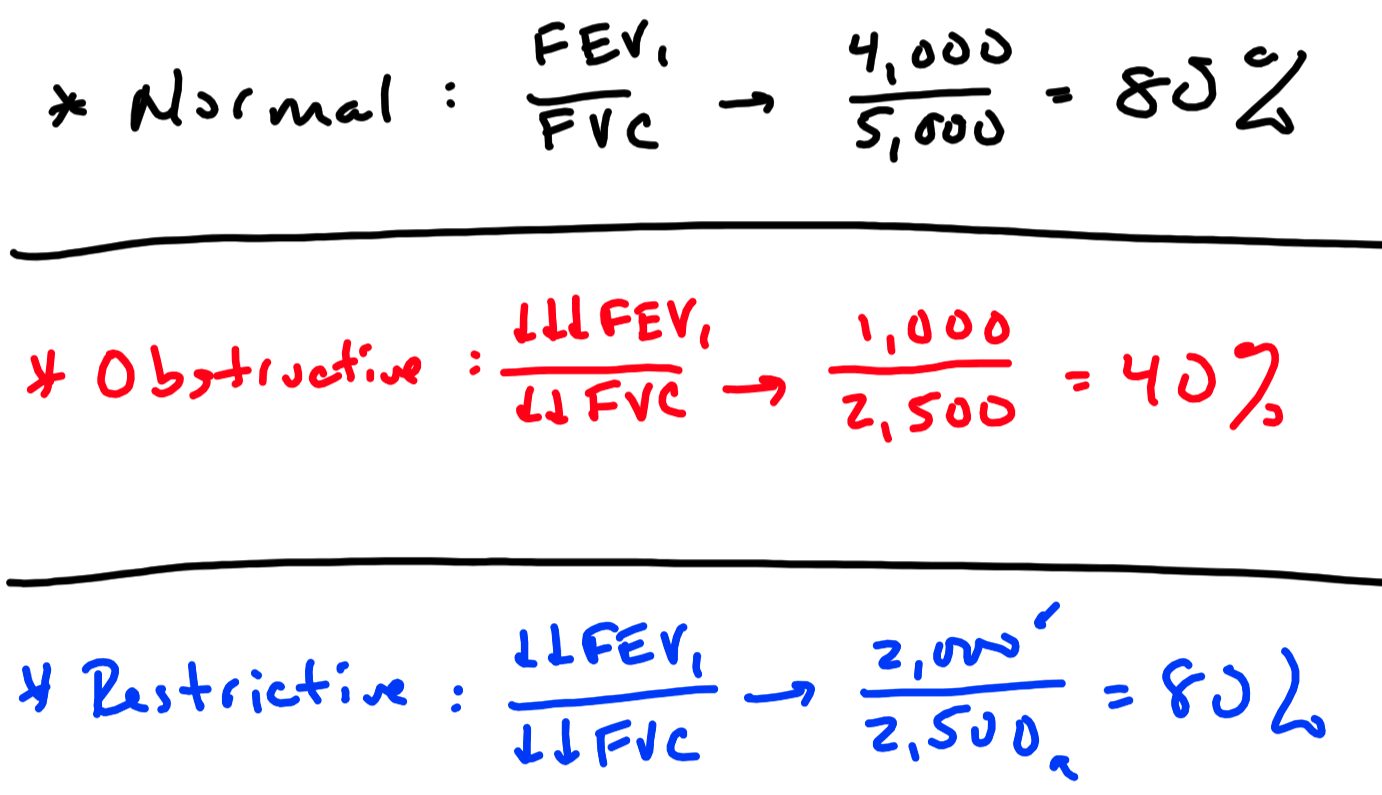 * Normal : FEV₁ / FVC → 4,000 / 5,000 = 80%
* Obstructive : ↓↓↓FEV₁ / ↓↓FVC → 1,000 / 2,500 = 40%
* Restrictive : ↓↓FEV₁ / ↓↓FVC → 2,000 / 2,500 = 80%